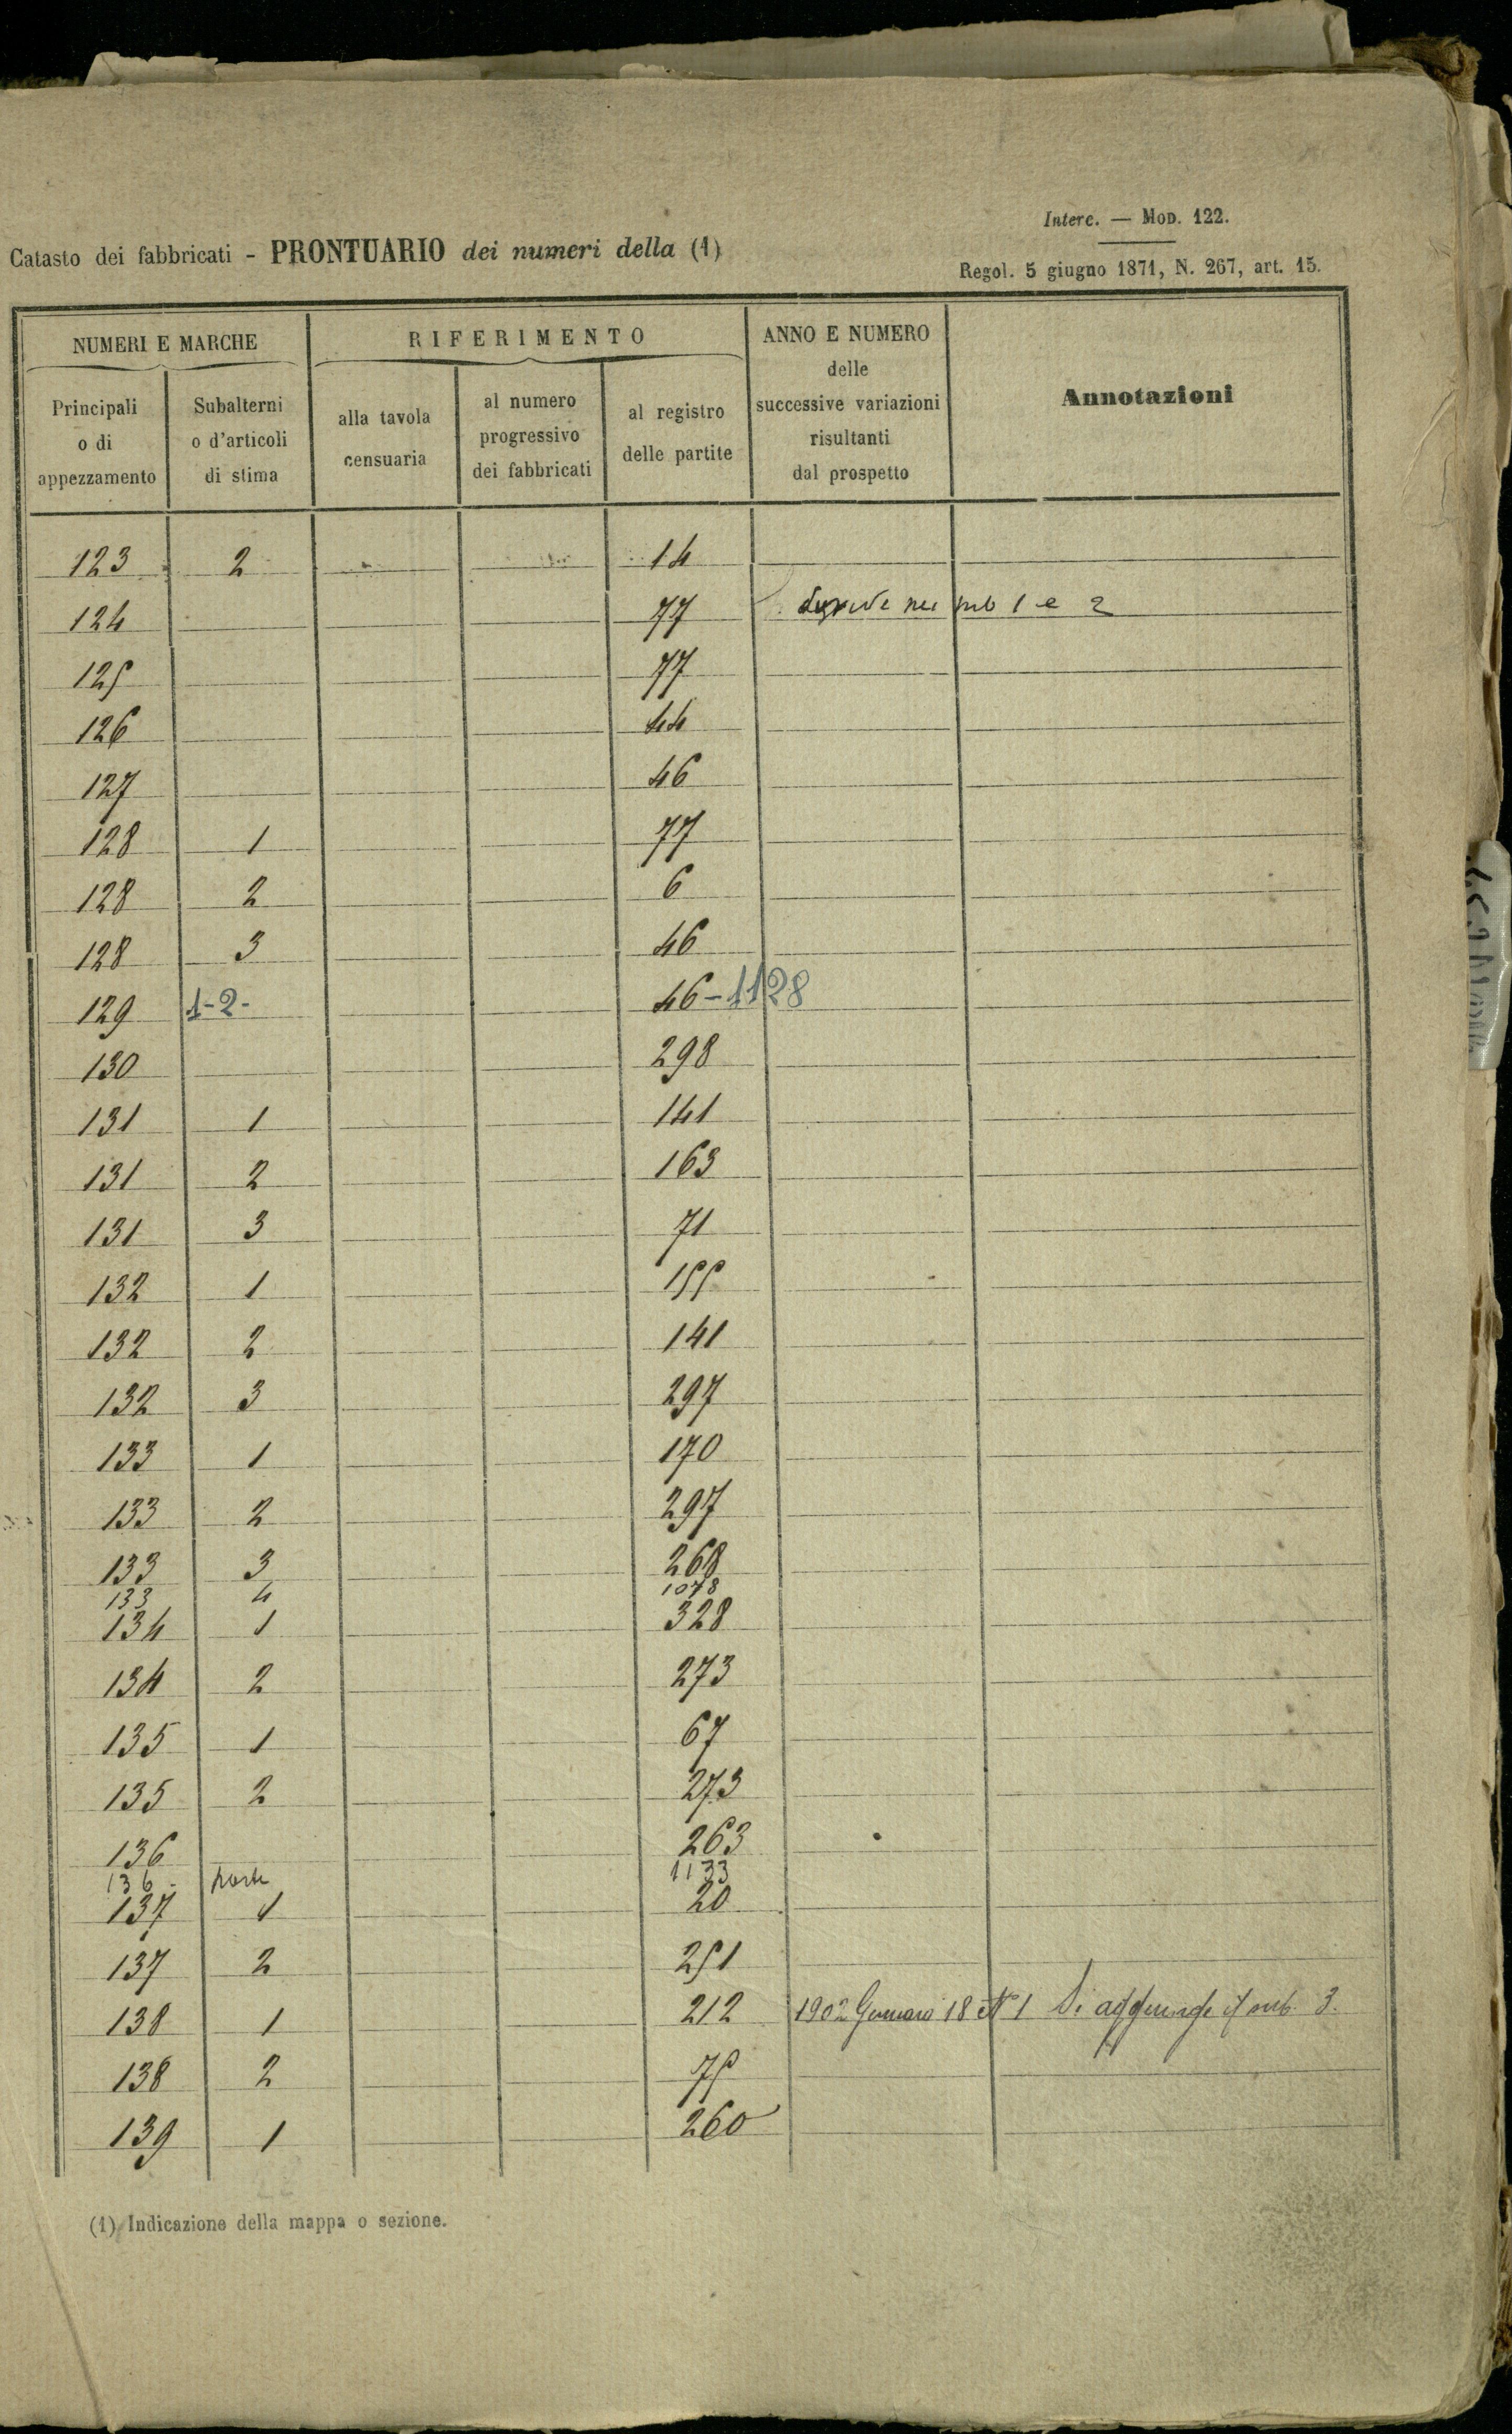 Interc. — Mod. 122.
Catasto dei fabbricati - PRONTUARIO dei numeri della (1)
Regol. 5 giugno 1871, N. 267, art. 15.
NUMERI E MARCHE RIFERIMENTO ANNO E NUMERO delle successive variazioni risultanti dal prospetto Annotazioni
Principali o di appezzamento Subalterni o d'articoli di stima alla tavola censuaria al numero progressivo dei fabbricati al registro delle partite
123 2 14
124 77 nei sub 1 e 2
125 77
126 44
127 46
128 1 77
128 2 6
128 3 46
129 1-2- 46-1128
130 298
131 1 141
131 2 163
131 3 71
132 1 155
132 2 141
132 3 297
133 1 170
133 2 297
133 3 268
133 4 1078
134 1 328
134 2 273
135 1 67
135 2 273
136 263
136 - parte 1133
137 1 20
137 2 251
138 1 212 1902 Gennaro 18 N° 1 Si aggiunge il sub. 3.
138 2 75
139 1 260
(1) Indicazione della mappa o sezione.